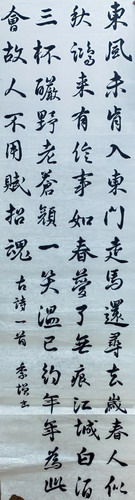 東風未肯入東門走馬還尋去歲春人似
秋鴻來有信事如春夢了無痕江城白酒
三杯釅野老蒼顏一笑溫已約年年為此
會故人不用賦招魂
古詩一首 李